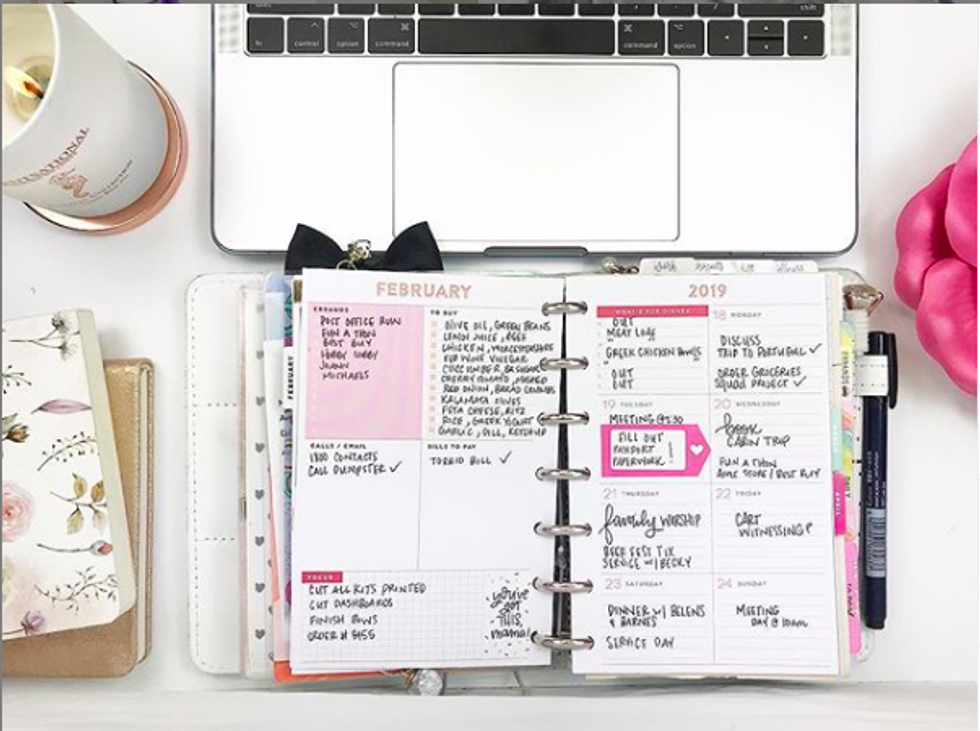 shift
fn
control
option
command
command
option
FEBRUARY
ERRANDS
POST OFFICE RUN
FUN A THON
BEST BUY
HOBBY LOBBY
JOANN
MICHAELS
TO BUY
OLIVE OIL, GREEN BEANS
LEMON JUICE, BEEF
CHICKEN, WORCESTERSHIRE
RED WINE VINEGAR
CUCUMBER, BR SUGAR
CHERRY TOMATO,
RED ONION, BREAD CRUMBS
KALAMATA OLIVES
FETA CHEESE, RITZ
RICE, GREEK YOGURT
GARLIC, DILL, KETCHUP
CALLS / EMAIL
1800 CONTACTS
CALL DUMPSTER ✓
BILLS TO PAY
TORRID BILL ✓
FOCUS
CUT ALL KITS PRINTED
CUT DASHBOARDS
FINISH BOWS
ORDER # 9455
you've
got
THIS,
mama!
FEBRUARY
2019
WHAT'S FOR DINNER
OUT
MEAT LOAF
GREEK CHICKEN BOWLS
OUT
OUT
18 MONDAY
DISCUSS
TRIP TO PORTUGAL ✓
ORDER GROCERIES
SQUAD PROJECT ✓
19 TUESDAY
MEETING @ 7:30
FILL OUT
PASSPORT
PAPERWORK!
20 WEDNESDAY
book
CABIN TRIP
FUN A THON
APPLE STORE / BEST BUY
21 THURSDAY
family WORSHIP
BEER FEST TIX
SERVICE W/ BECKY
22 FRIDAY
CART
WITNESSING?
23 SATURDAY
DINNER W/ BELENS
& BARNES
SERVICE DAY
24 SUNDAY
MEETING
DAY @ 10am